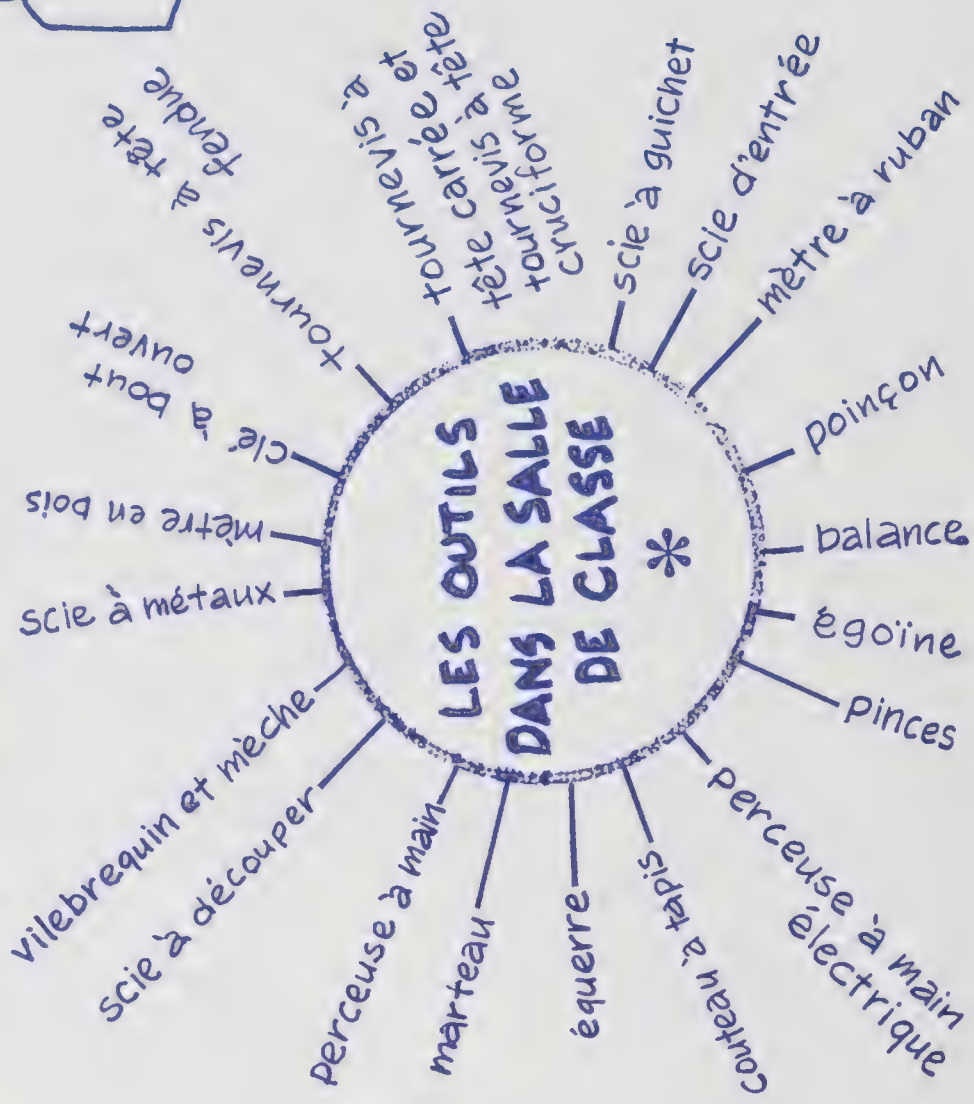 LES OUTILS
DANS LA SALLE
DE CLASSE
*
tournevis à
tête carrée et
tournevis à tête
cruciforme
scie à guichet
scie d'entrée
mètre à ruban
poinçon
balance
égoïne
pinces
perceuse à main
électrique
couteau à tapis
équerre
marteau
perceuse à main
scie à découper
vilebrequin et mèche
scie à métaux
mètre en bois
clé à bout
ouvert
tournevis à tête
fendue